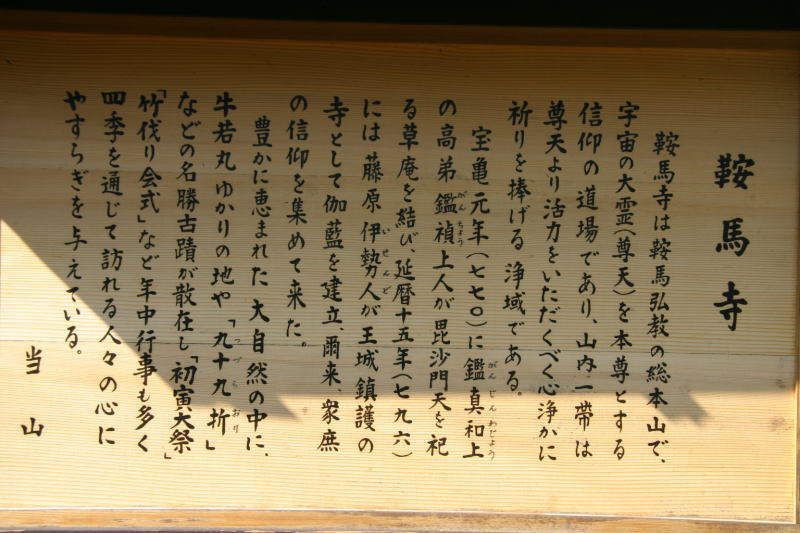 鞍馬寺
鞍馬寺は鞍馬弘教の総本山で、
宇宙の大霊(尊天)を本尊とする
信仰の道場であり、山内一帯は
尊天より活力をいただくべく心浄かに
祈りを捧げる浄域である。
宝亀元年(七七〇)に鑑真和上
の高弟鑑禎上人が毘沙門天を祀
る草庵を結び、延暦十五年(七九六)
には藤原伊勢人が王城鎮護の
寺として伽藍を建立、爾来、衆庶
の信仰を集めて来た。
豊かに恵まれた大自然の中に、
牛若丸ゆかりの地や「九十九折」
などの名勝古蹟が散在し「初寅大祭」
「竹伐り会式」など年中行事も多く
四季を通じて訪れる人々の心に
やすらぎを与えている。
当山